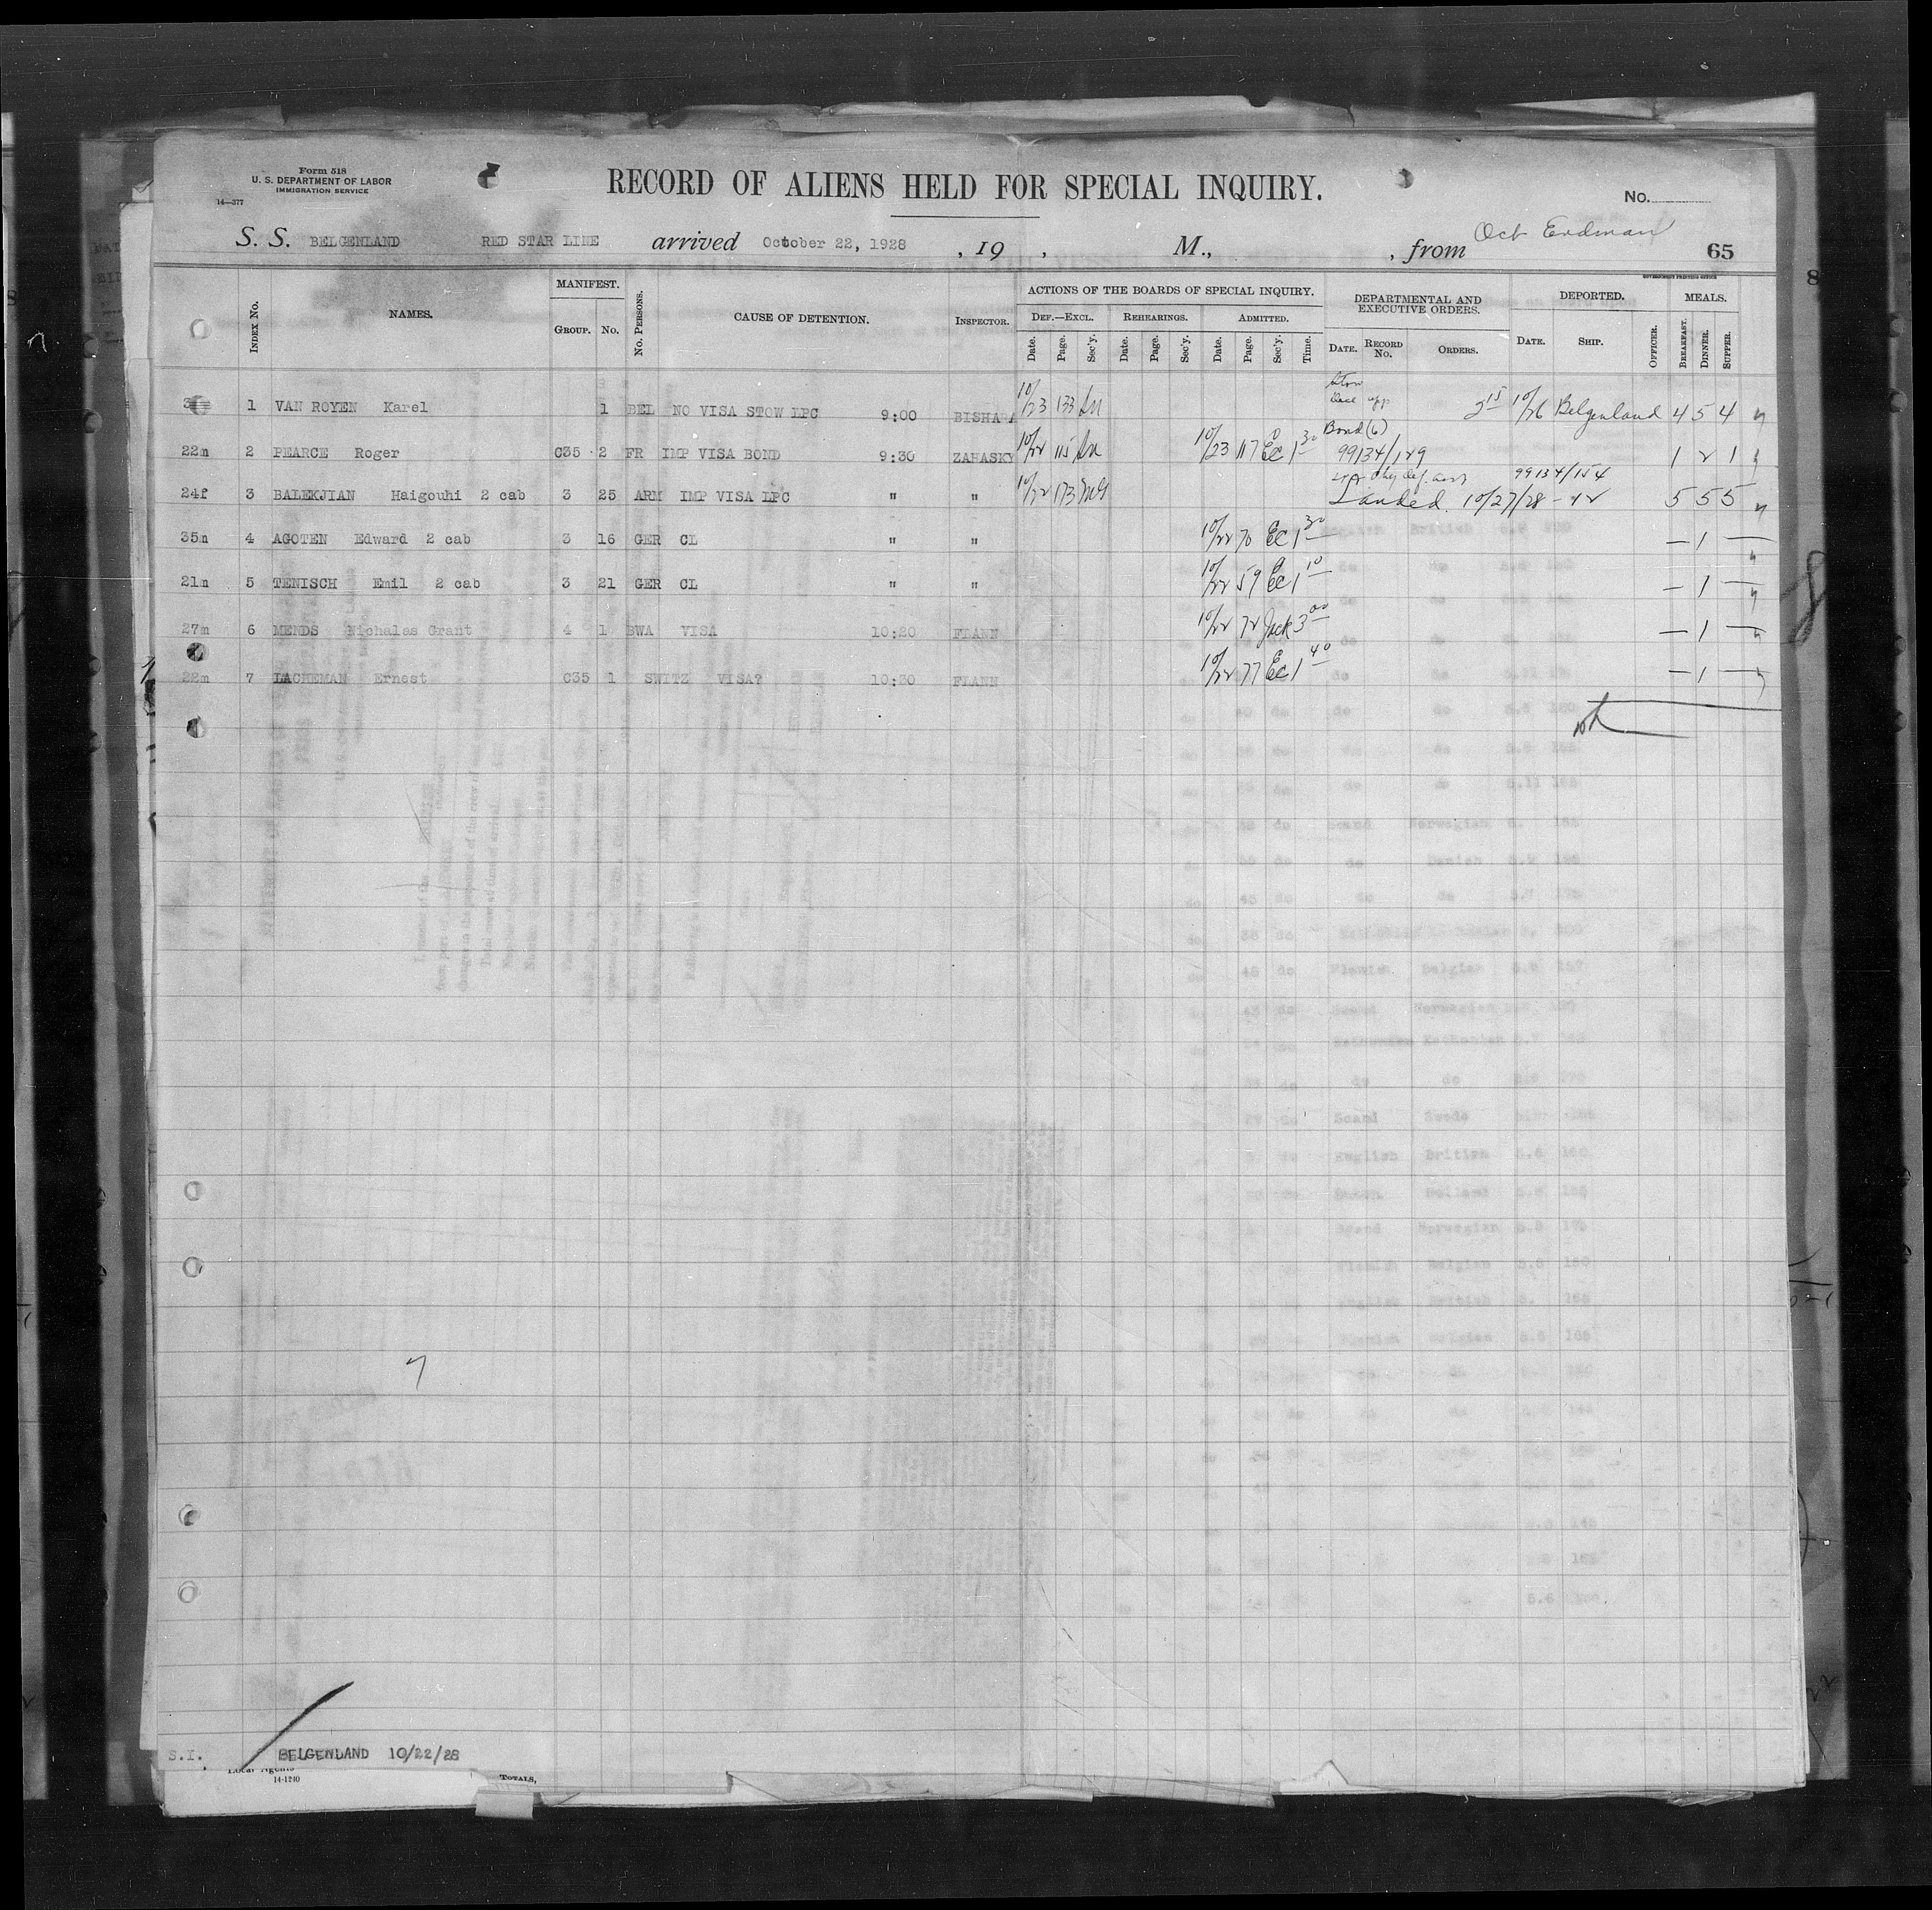 Form 518
U. S. DEPARTMENT OF LABOR
IMMIGRATION SERVICE
14—377
RECORD OF ALIENS HELD FOR SPECIAL INQUIRY.
No.
S. S. BELGENLAND RED STAR LINE arrived October 22, 1928 , 19 , M., , from Oct Erdman 65
GOVERNMENT PRINTING OFFICE
INDEX No. NAMES. MANIFEST. GROUP. No. No. PERSONS. CAUSE OF DETENTION. INSPECTOR. ACTIONS OF THE BOARDS OF SPECIAL INQUIRY. DEPARTMENTAL AND EXECUTIVE ORDERS. DEPORTED. MEALS.
DEF.—EXCL. REHEARINGS. ADMITTED.
Date. Page. Sec'y. Date. Page. Sec'y. Date. Page. Sec'y. Time. DATE. RECORD No. ORDERS. DATE. SHIP. OFFICER. BREAKFAST. DINNER. SUPPER.
1 VAN ROYEN Karel 1 BEL NO VISA STOW LPC 9:00 BISHARA 10/23 133 2 15 10/26 Belgenland 4 5 4
22m 2 PEARCE Roger C35 2 FR IMP VISA BOND 9:30 ZAHASKY 10/22 115 10/23 117 EC 1 30 Bond (6) 99134/129 1 2 1
24f 3 BALEKJIAN Haigouhi 2 cab 3 25 ARM IMP VISA LPC " " 10/22 173 99134/154 Landed 10/27/28 5 5 5
35m 4 AGOTEN Edward 2 cab 3 16 GER CL " " 10/22 70 EC 1 30 — 1 —
21m 5 TENISCH Emil 2 cab 3 21 GER CL " " 10/22 59 EC 1 10 — 1 —
27m 6 MENDS Nichalas Grant 4 1 BWA VISA 10:20 FLANN 10/22 72 Jack 3 00 — 1 —
22m 7 LACHEMAN Ernest C35 1 SWITZ VISA? 10:30 FLANN 10/22 77 EC 1 40 — 1 —
7
S.I. BELGENLAND 10/22/28
Local Agents
14-1240
TOTALS,